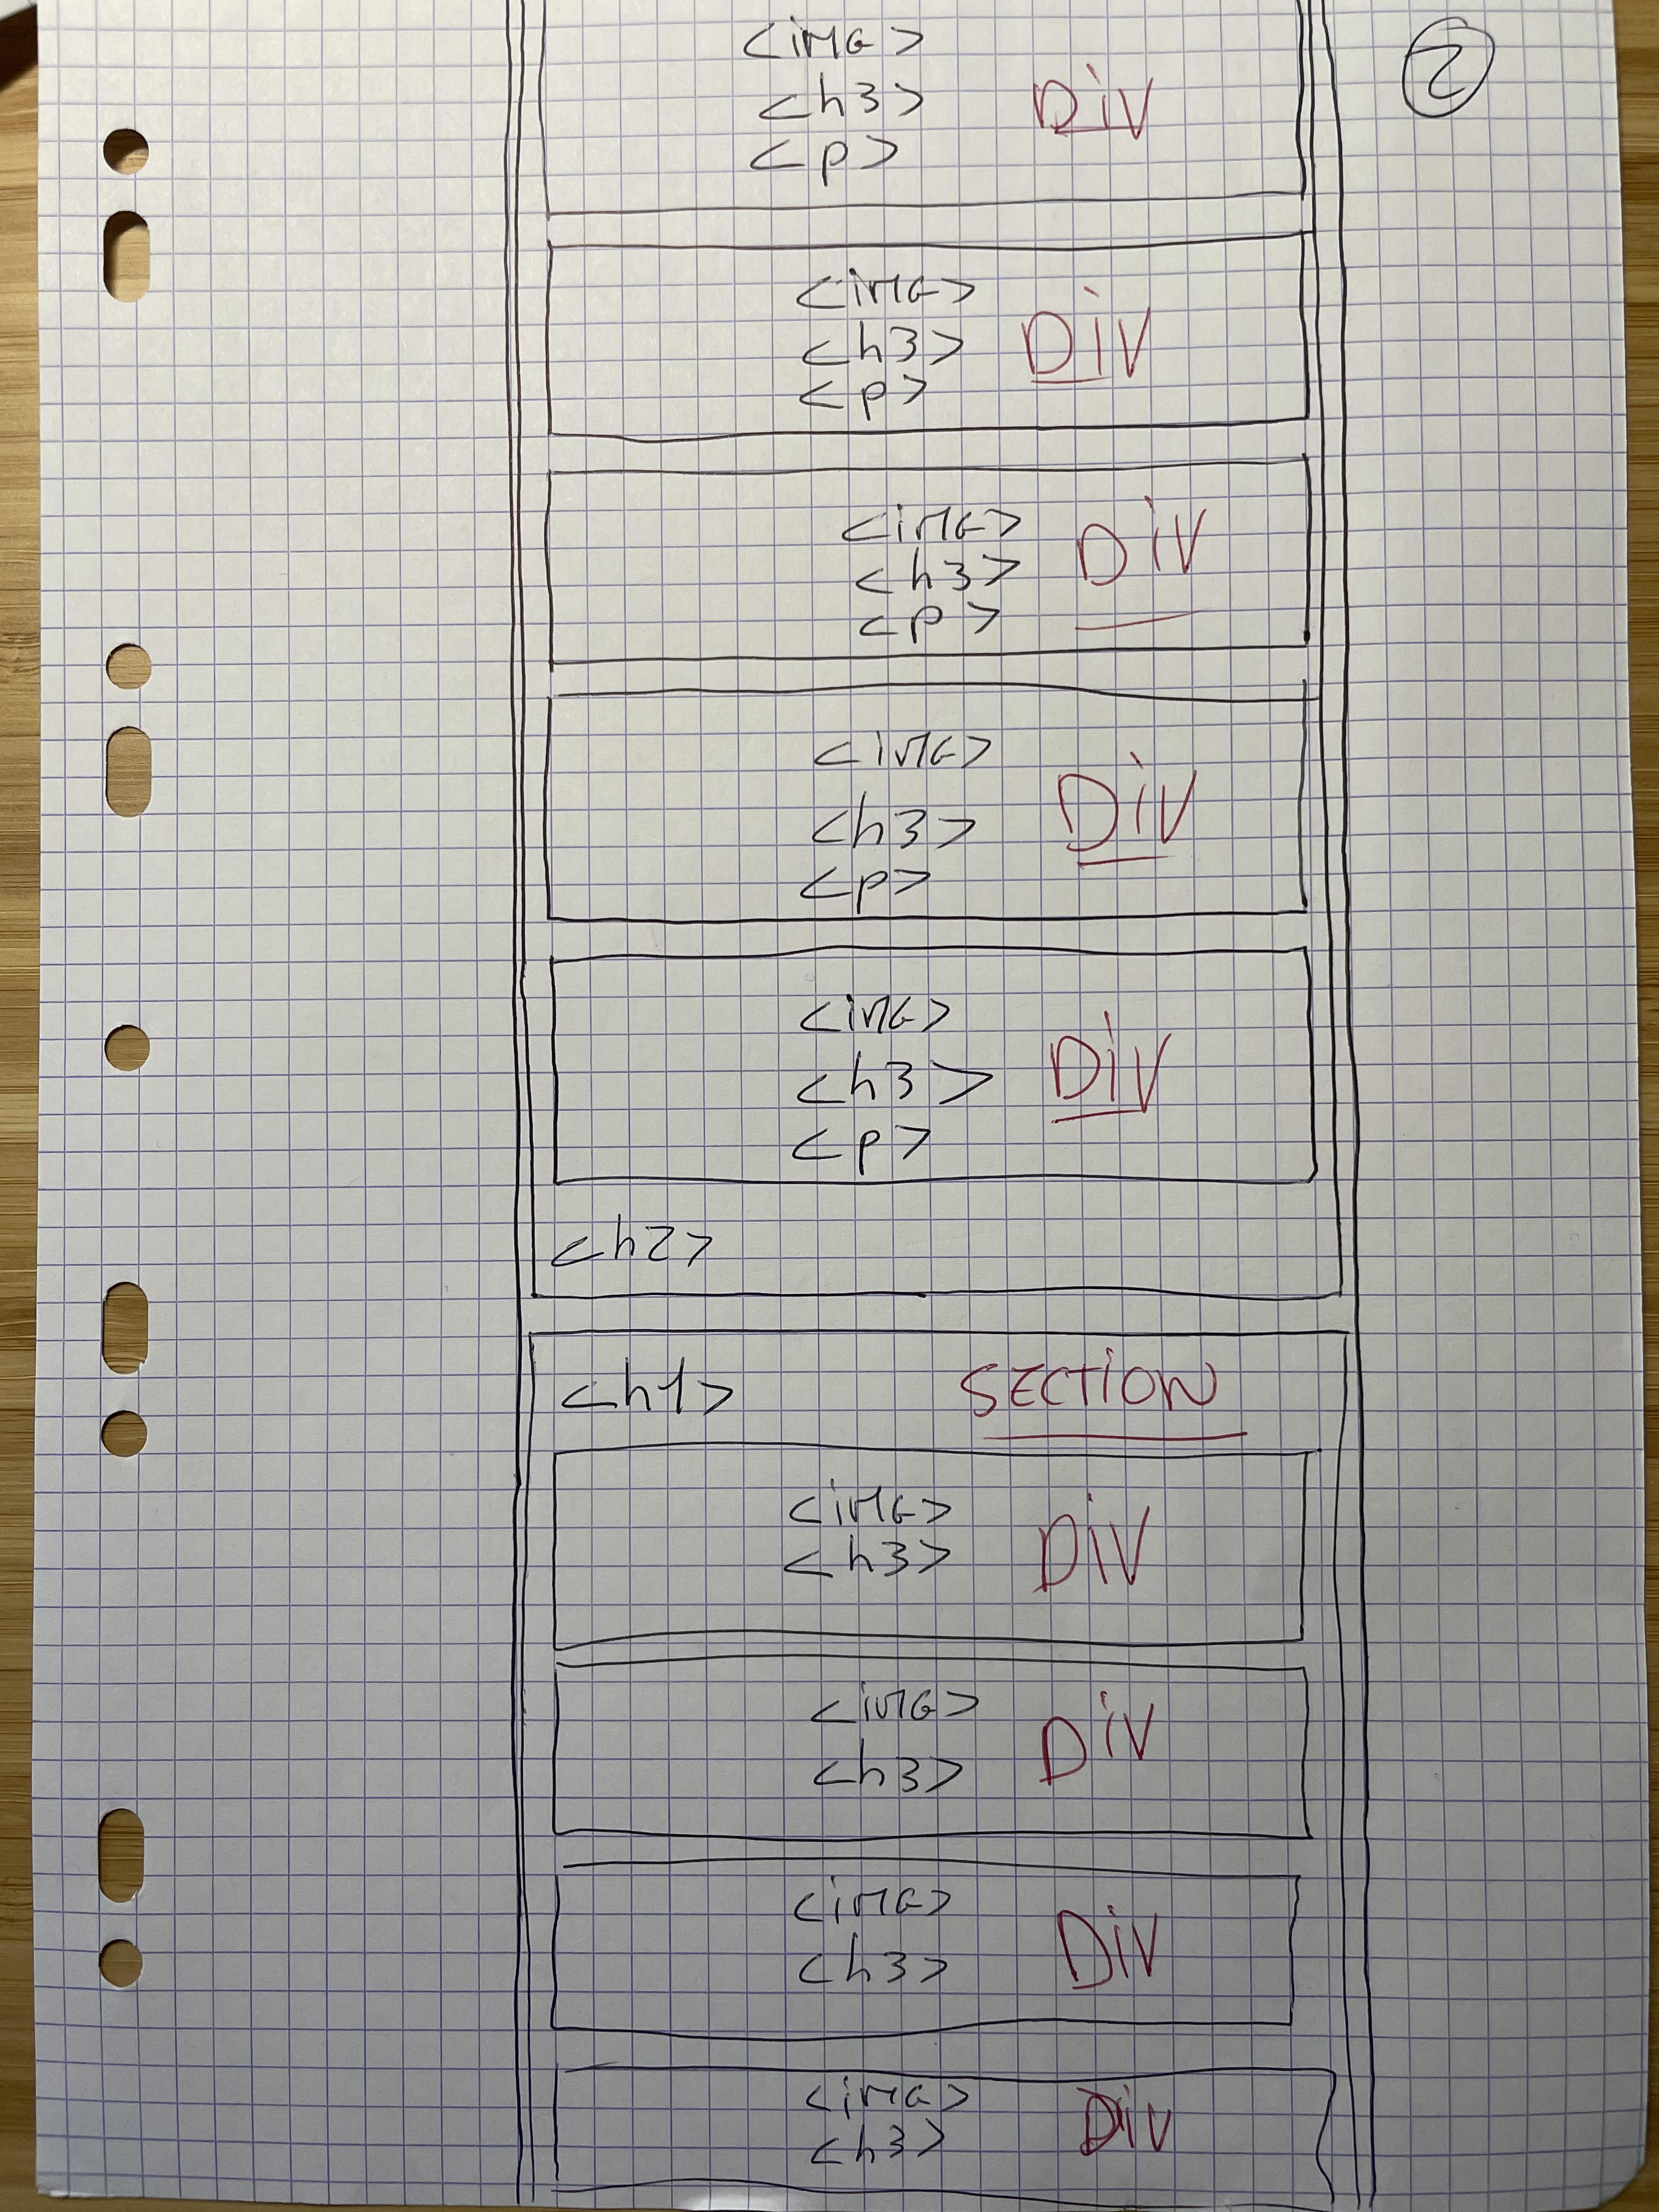 <img>
2
<h3> Div
<p>
<img>
<h3> Div
<p>
<img>
<h3> Div
<p>
<img>
<h3> Div
<p>
<img>
<h3> Div
<p>
<h2>
<h1> SECTION
<img>
<h3> Div
<img>
<h3> Div
<img>
<h3> Div
<img> Div
<h3>